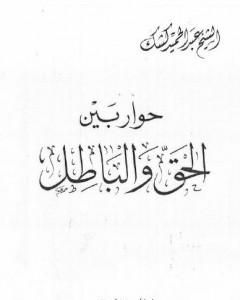 الشيخ عبد الحميد كشك
حوار بين
الحق والباطل